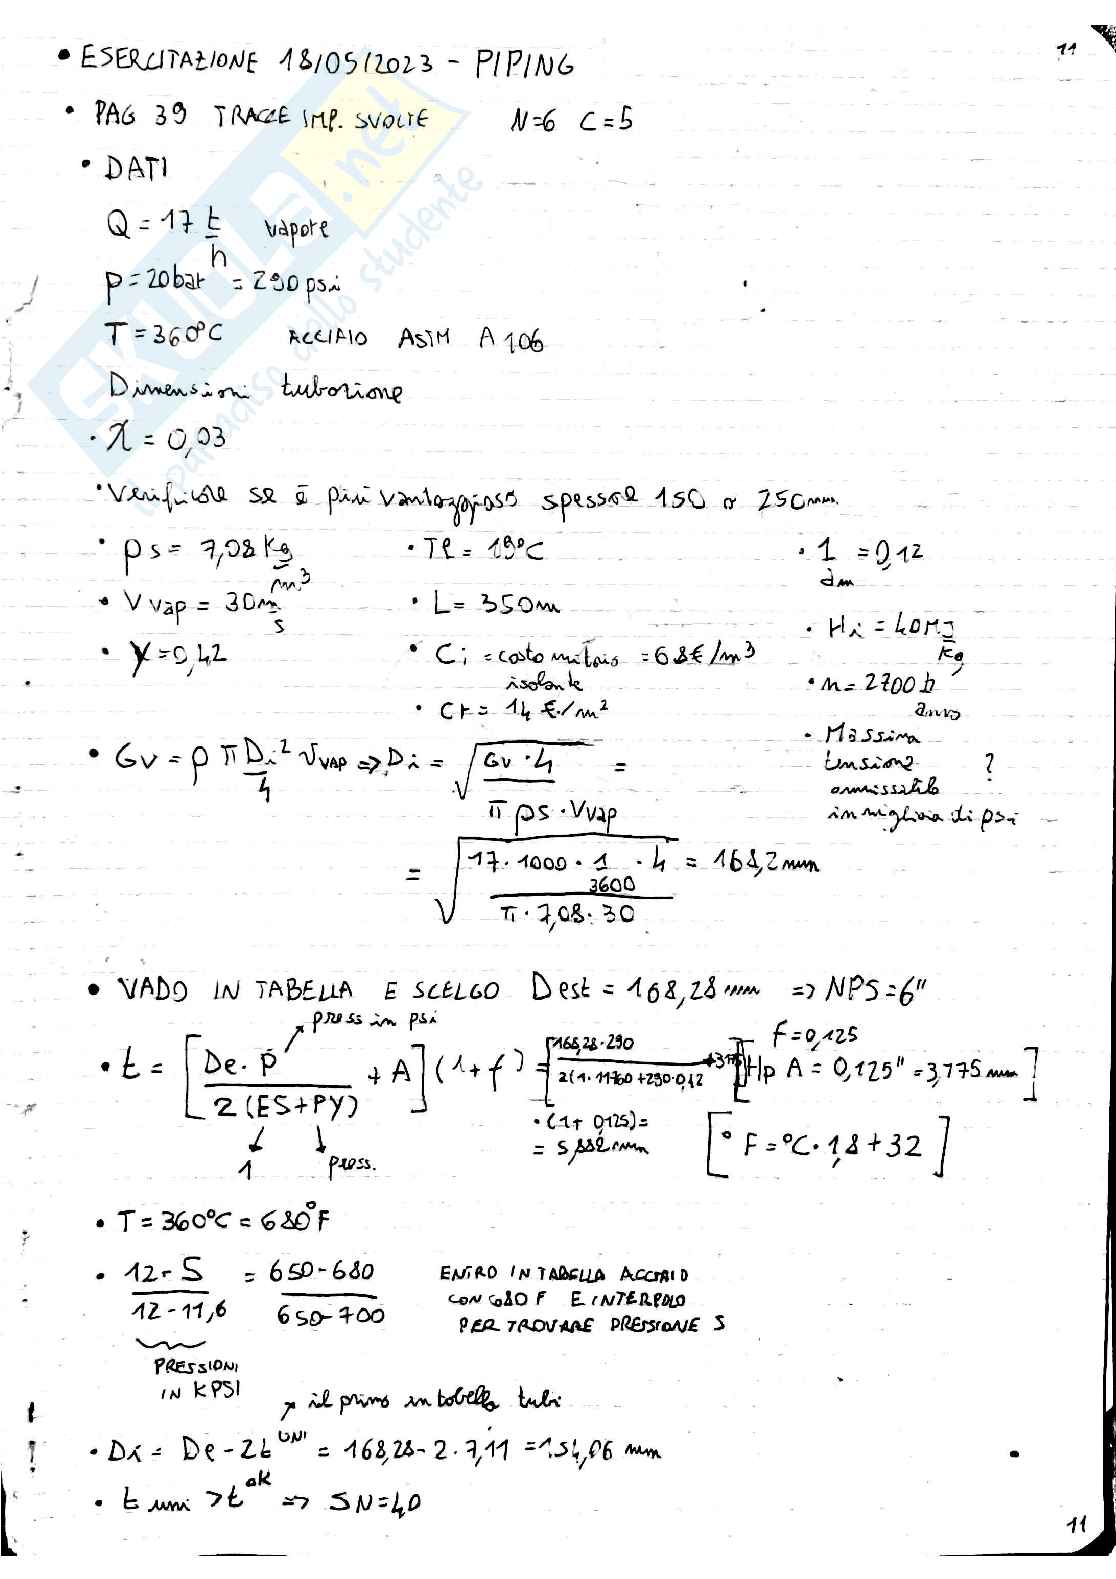 11
• ESERCITAZIONE 18/05/2023 - PIPING
• PAG 39 TRACCE IMP. SVOLTE N=6 C=5
• DATI
Q = 17 t/h vapore
p = 20 bar = 290 psi
T = 360°C ACCIAIO ASTM A 106
Dimensioni tubazione
• λ = 0,03
• Verificare se è più vantaggioso spessore 150 o 250 mm
• ρs = 7,08 kg/m³ • Te = 19°C • 1/am = 0,12
• Vvap = 30 m/s • L = 350 m • Hi = 40 MJ/kg
• Y = 0,42 • Ci = costo unitario isolante = 68 €/m³ • n = 2700 h/anno
• Cr = 14 €/m²
• Massima tensione ammissibile in migliaia di psi ?
• Gv = ρ π Di²/4 Vvap => Di = √(Gv · 4 / π ρs · Vvap) =
= √(17 · 1000 · 1/3600 · 4 / π · 7,08 · 30) = 168,2 mm
• VADO IN TABELLA E SCELGO Dest = 168,28 mm => NPS = 6"
press in psi
f = 0,125
• t = [De · P / 2(ES+PY) + A](1+f) = [168,28 · 290 / 2(1 · 11760 + 290 · 0,42 +3,175] [Hp A = 0,125" = 3,175 mm]
· (1 + 0,125) =
= 5,882 mm [°F = °C · 1,8 + 32]
1 press.
• T = 360°C = 680°F
• 12 - S / 12 - 11,6 = 650 - 680 / 650 - 700
ENTRO IN TABELLA ACCIAIO
CON 680 F E INTERPOLO
PER TROVARE PRESSIONE S
PRESSIONI
IN KPSI
il primo in tabella tubi
• Di = De - 2t^UNI = 168,28 - 2 · 7,11 = 154,06 mm
• t uni > t ok => SN = 40
11
SKUOLA.net
il paradiso dello studente